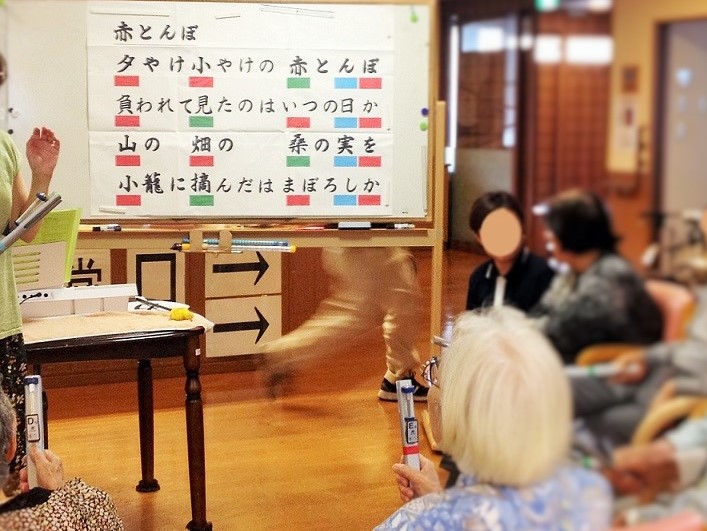 赤とんぼ
夕やけ小やけの 赤とんぼ
負われて見たのはいつの日か
山の 畑の 桑の実を
小籠に摘んだは まぼろしか
堂
→
→
D
E